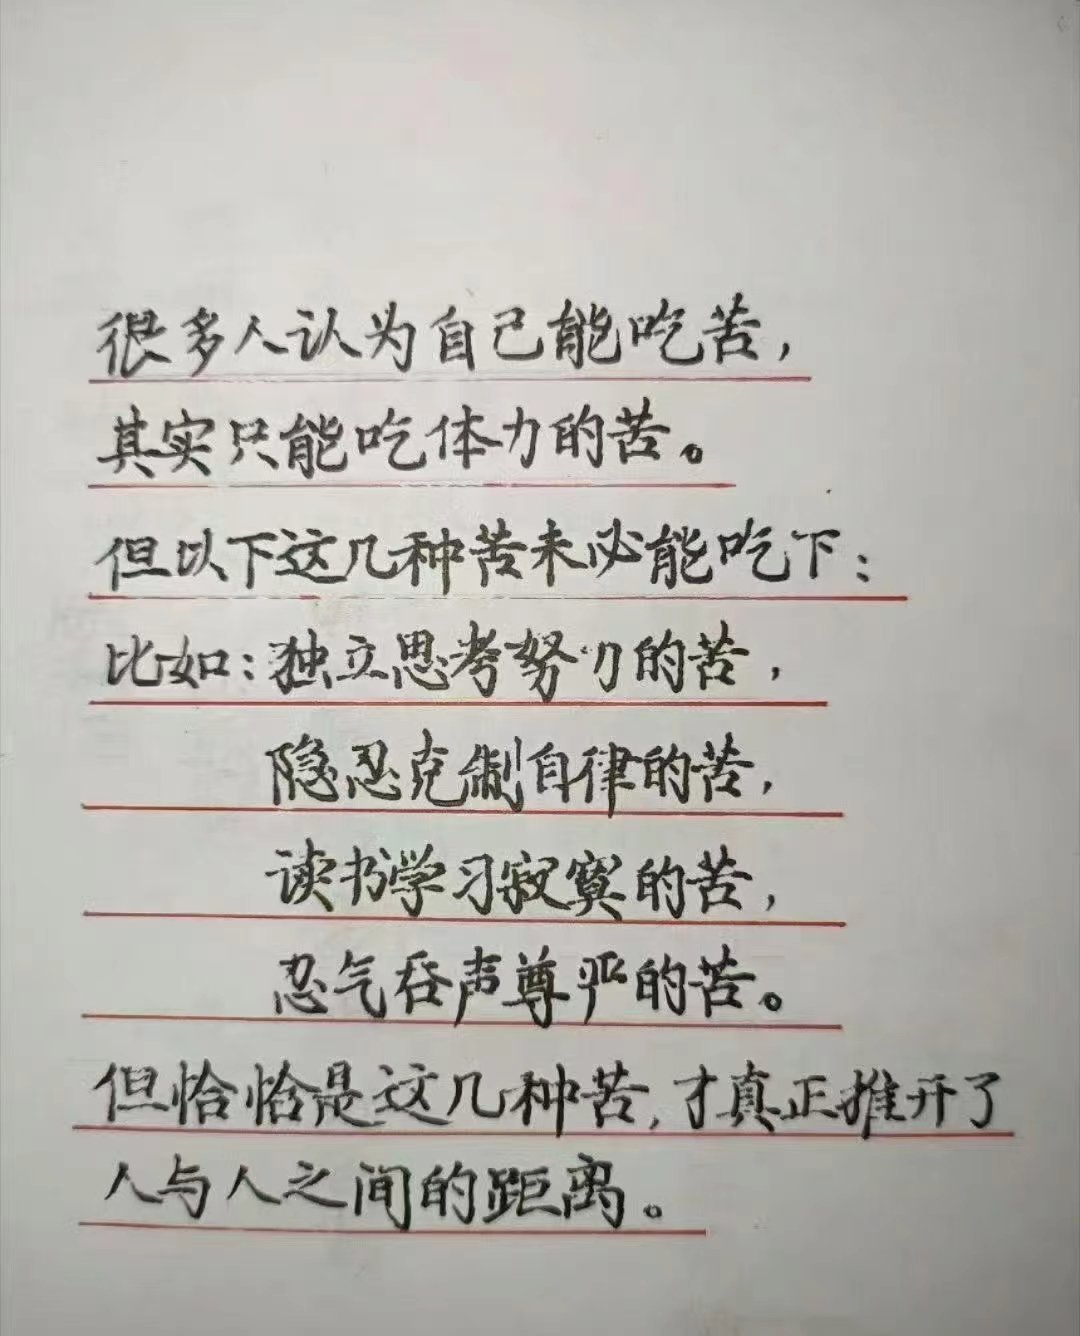 很多人认为自己能吃苦，
其实只能吃体力的苦。
但以下这几种苦未必能吃下：
比如：独立思考努力的苦，
隐忍克制自律的苦，
读书学习寂寞的苦，
忍气吞声尊严的苦。
但恰恰是这几种苦，才真正推开了
人与人之间的距离。